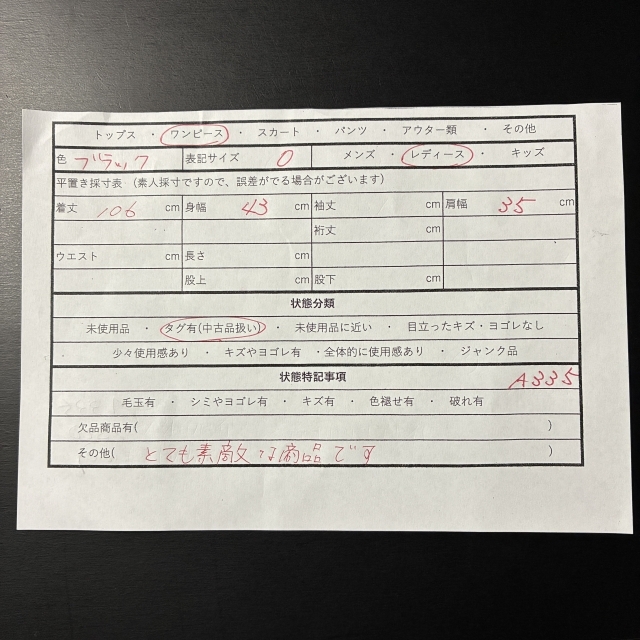 トップス ・ ワンピース ・ スカート ・ パンツ ・ アウター類 ・ その他
色 ブラック 表記サイズ 0 メンズ ・ レディース ・ キッズ
平置き採寸表 (素人採寸ですので、誤差がでる場合がございます)
着丈 106 cm 身幅 43 cm 袖丈 cm 肩幅 35 cm
裄丈 cm
ウエスト cm 長さ cm
股上 cm 股下 cm
状態分類
未使用品 ・ タグ有(中古品扱い) ・ 未使用品に近い ・ 目立ったキズ・ヨゴレなし
少々使用感あり ・ キズやヨゴレ有 ・全体的に使用感あり ・ ジャンク品
状態特記事項 A335
毛玉有 ・ シミやヨゴレ有 ・ キズ有 ・ 色褪せ有 ・ 破れ有
欠品商品有( )
その他( とても素敵な商品です )